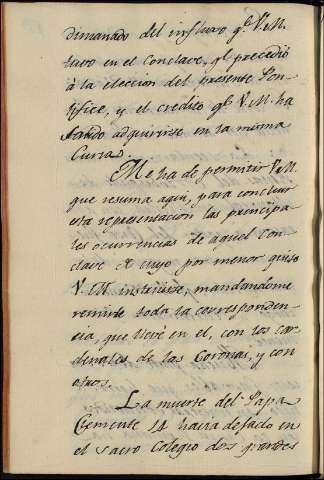 dimanado del influxo q.e V.M.
tuvo en el Conclave, q.e precedió
à la eleccion del presente Pon-
tifice, y el credito q.e V.M. ha
sabido adquirirse en la misma
Curia.
Me ha de permitir V.M.
que resuma aqui, para concluir
esta representacion las principa-
les ocurrencias de aquel Con-
clave de cuyo por menor quiso
V.M. instruirse, mandandome
remitir toda la corresponden-
cia, que llevé en el, con los Car-
denales de las Coronas, y con
otros.
La muerte del Papa
Clemente 14 havia dexado en
el Sacro Colegio dos grandes